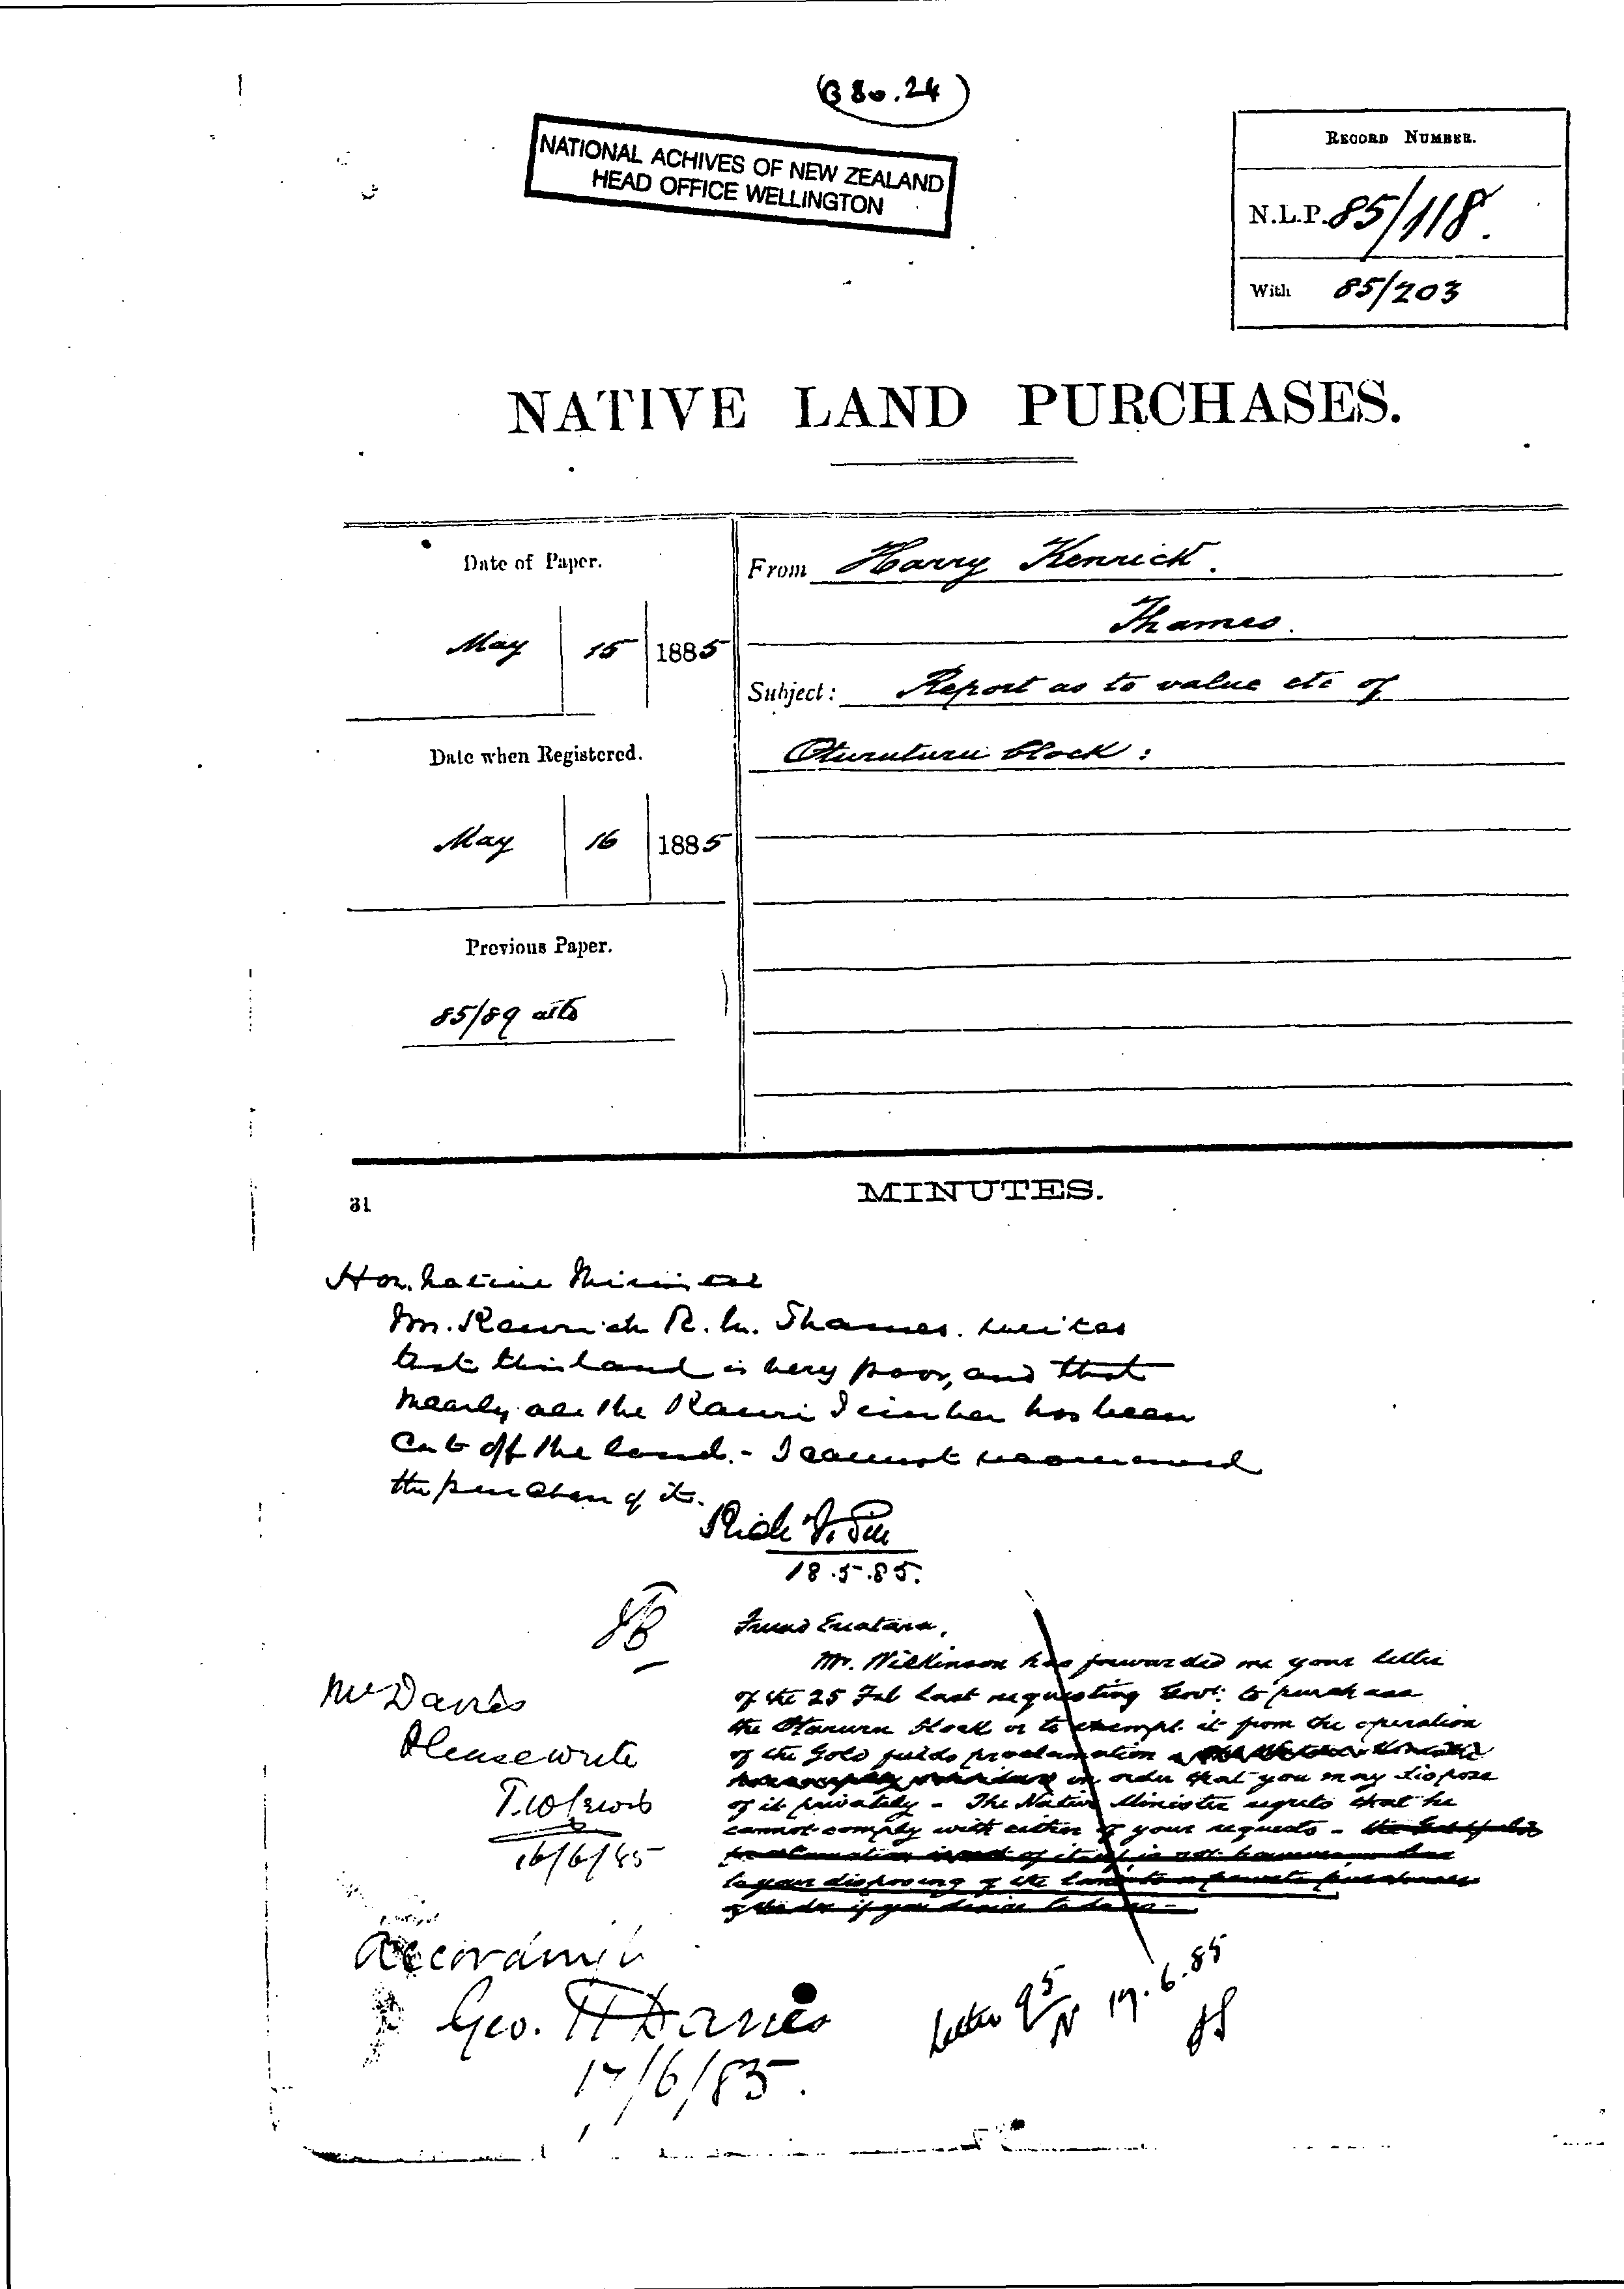 (B 80.24)
NATIONAL ACHIVES OF NEW ZEALAND
HEAD OFFICE WELLINGTON
RECORD NUMBER.
N.L.P. 85/118.
With 85/203
NATIVE LAND PURCHASES.
Date of Paper.
May 15 1885
Date when Registered.
May 16 1885
Previous Paper.
85/89
From Harry Kenrick.
Thames.
Subject: Report as to value etc of
Oturuturu block:
31
MINUTES.
Hon. Native Minister
Mr. Kenrick R.M. Thames. writes
that this land is very poor, and that
nearly all the Kauri Timber has been
Cut off the land. - I cannot recommend
the purchase of it.
18.5.85.
Friend
Mr. Wilkinson has forwarded me your letter
of the 25 Feb last requesting Govt. to purchase
the block or to exempt it from the operation
of the Gold fields proclamation
in order that you may dispose
of it privately - The Native Minister regrets that he
cannot comply with either of your requests -
to your disposing of the land to a private purchaser
if you desire to do so -
Mr Davies
Please write
T.W. Lewis
16/6/85
Accordingly
Geo. H Davies
17/6/85.
Letter 95/N 19.6.85